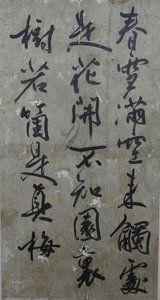 春雪滿空來觸處
是花開不知園裏
樹若箇是真梅